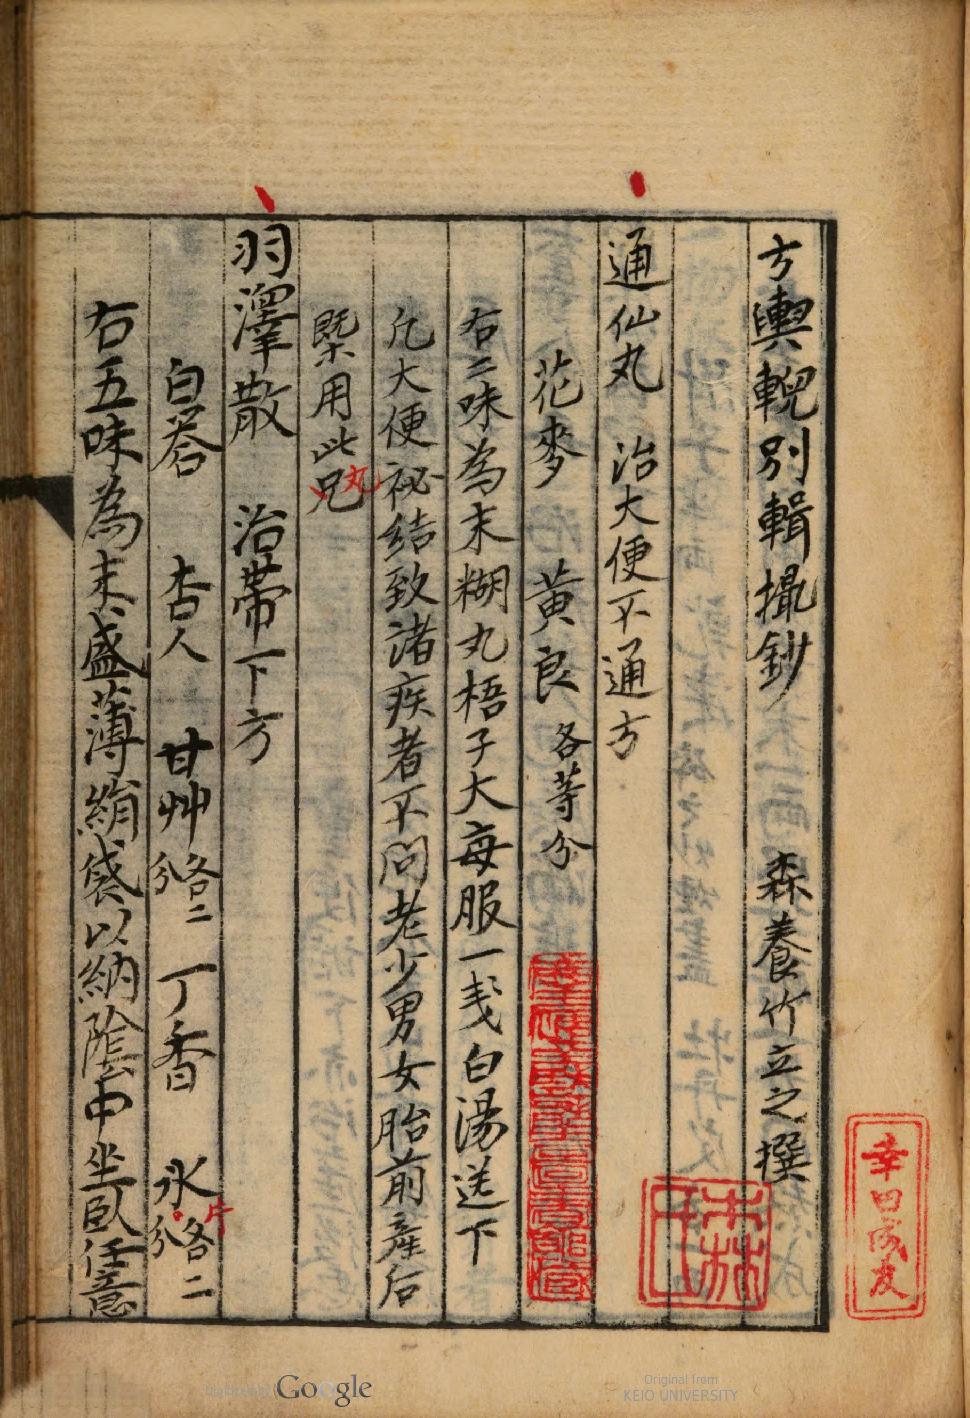 方輿輗別輯撮鈔 森養竹立之撰
通仙丸 治大便不通方
花麥 黄良 各等分
右二味為末糊丸梧子大每服一戔白湯送下
凡大便祕結致諸疾者不問老少男女胎前産后
槩用此 丸
羽澤散 治帶下方
白礬 杏人 甘艸 各二分 丁香 氷片 各二分
右五味為末盛薄絹袋以納陰中坐臥任意
幸田成友
森氏
Digitized by Google
Original from
KEIO UNIVERSITY